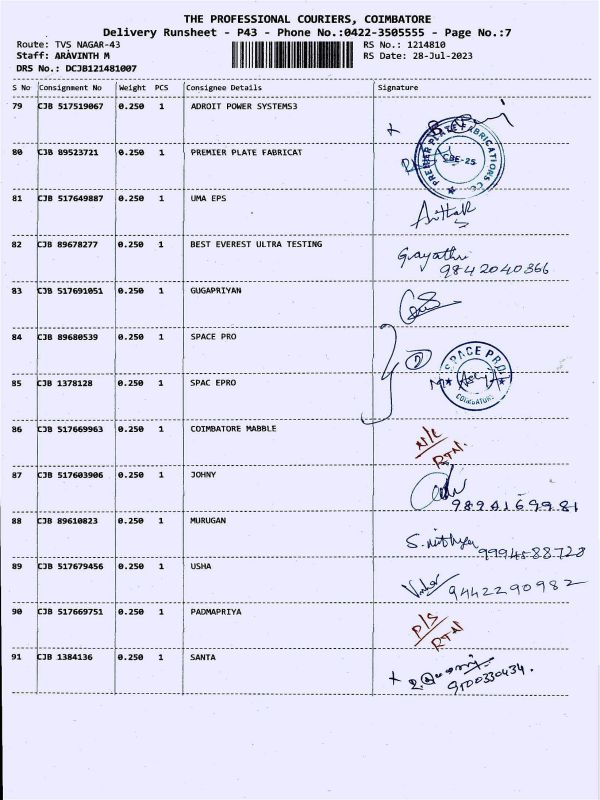 THE PROFESSIONAL COURIERS, COIMBATORE
Delivery Runsheet - P43 - Phone No.:0422-3505555 - Page No.:7
Route: TVS NAGAR-43 RS No.: 1214810
Staff: ARAVINTH M RS Date: 28-Jul-2023
DRS No.: DCJB121481007
S No Consignment No Weight PCS Consignee Details Signature
79 CJB 517519067 0.250 1 ADROIT POWER SYSTEMS3
80 CJB 89523721 0.250 1 PREMIER PLATE FABRICAT
PREMIER PLATE FABRICATIONS CO
CBE-25
81 CJB 517649887 0.250 1 UMA EPS
82 CJB 89678277 0.250 1 BEST EVEREST ULTRA TESTING Gayathri
9842040366
83 CJB 517691051 0.250 1 GUGAPRIYAN
84 CJB 89680539 0.250 1 SPACE PRO
2
SPACE PRO
COIMBATORE
85 CJB 1378128 0.250 1 SPAC EPRO
86 CJB 517669963 0.250 1 COIMBATORE MABBLE N/C
RTN.
87 CJB 517603906 0.250 1 JOHNY
9894169981
88 CJB 89610823 0.250 1 MURUGAN S. nithya
9994588728
89 CJB 517679456 0.250 1 USHA
9442290982
90 CJB 517669751 0.250 1 PADMAPRIYA P/S
RTN
91 CJB 1384136 0.250 1 SANTA
9500330434.